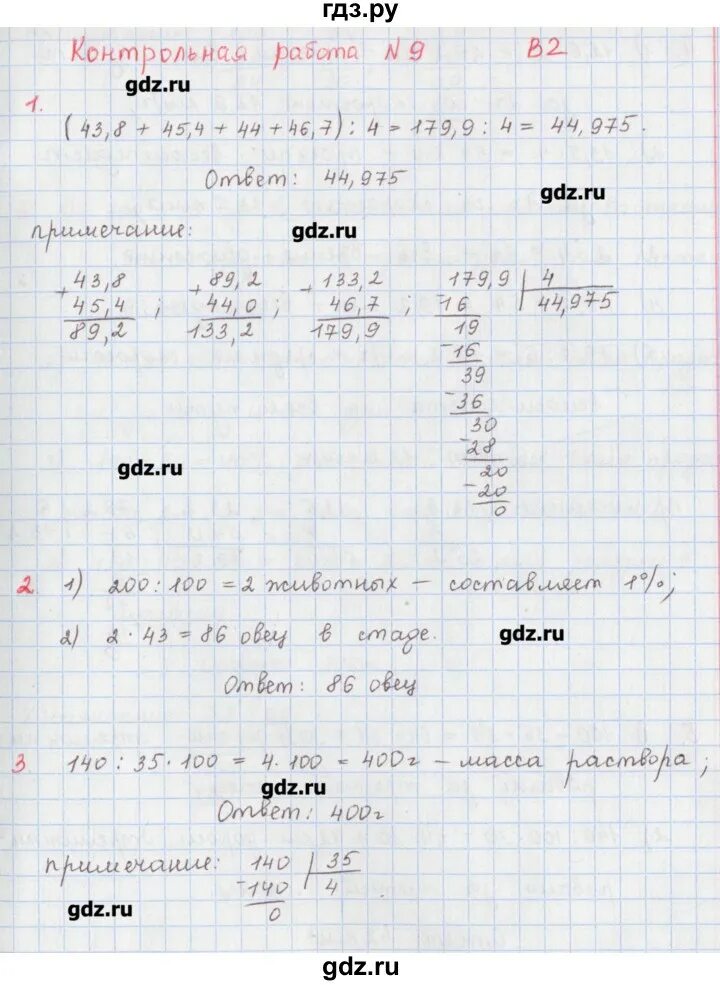 гдз.ру
Контрольная работа N9 В2
gdz.ru
1.
(43,8 + 45,4 + 44 + 46,7) : 4 = 179,9 : 4 = 44,975.
Ответ: 44,975
gdz.ru
примечание:
gdz.ru
+43,8 +89,2 +133,2 179,9 | 4
45,4 ; 44,0 ; 46,7 ; -16 44,975
89,2 133,2 179,9 19
-16
39
-36
30
gdz.ru
-28
20
-20
0
2. 1) 200 : 100 = 2 животных — составляет 1%;
2) 2 · 43 = 86 овец в стаде.
gdz.ru
Ответ: 86 овец
3. 140 : 35 · 100 = 4 · 100 = 400г — масса раствора;
gdz.ru
Ответ: 400г
примечание: 140 | 35
-140 4
0
gdz.ru
gdz.ru